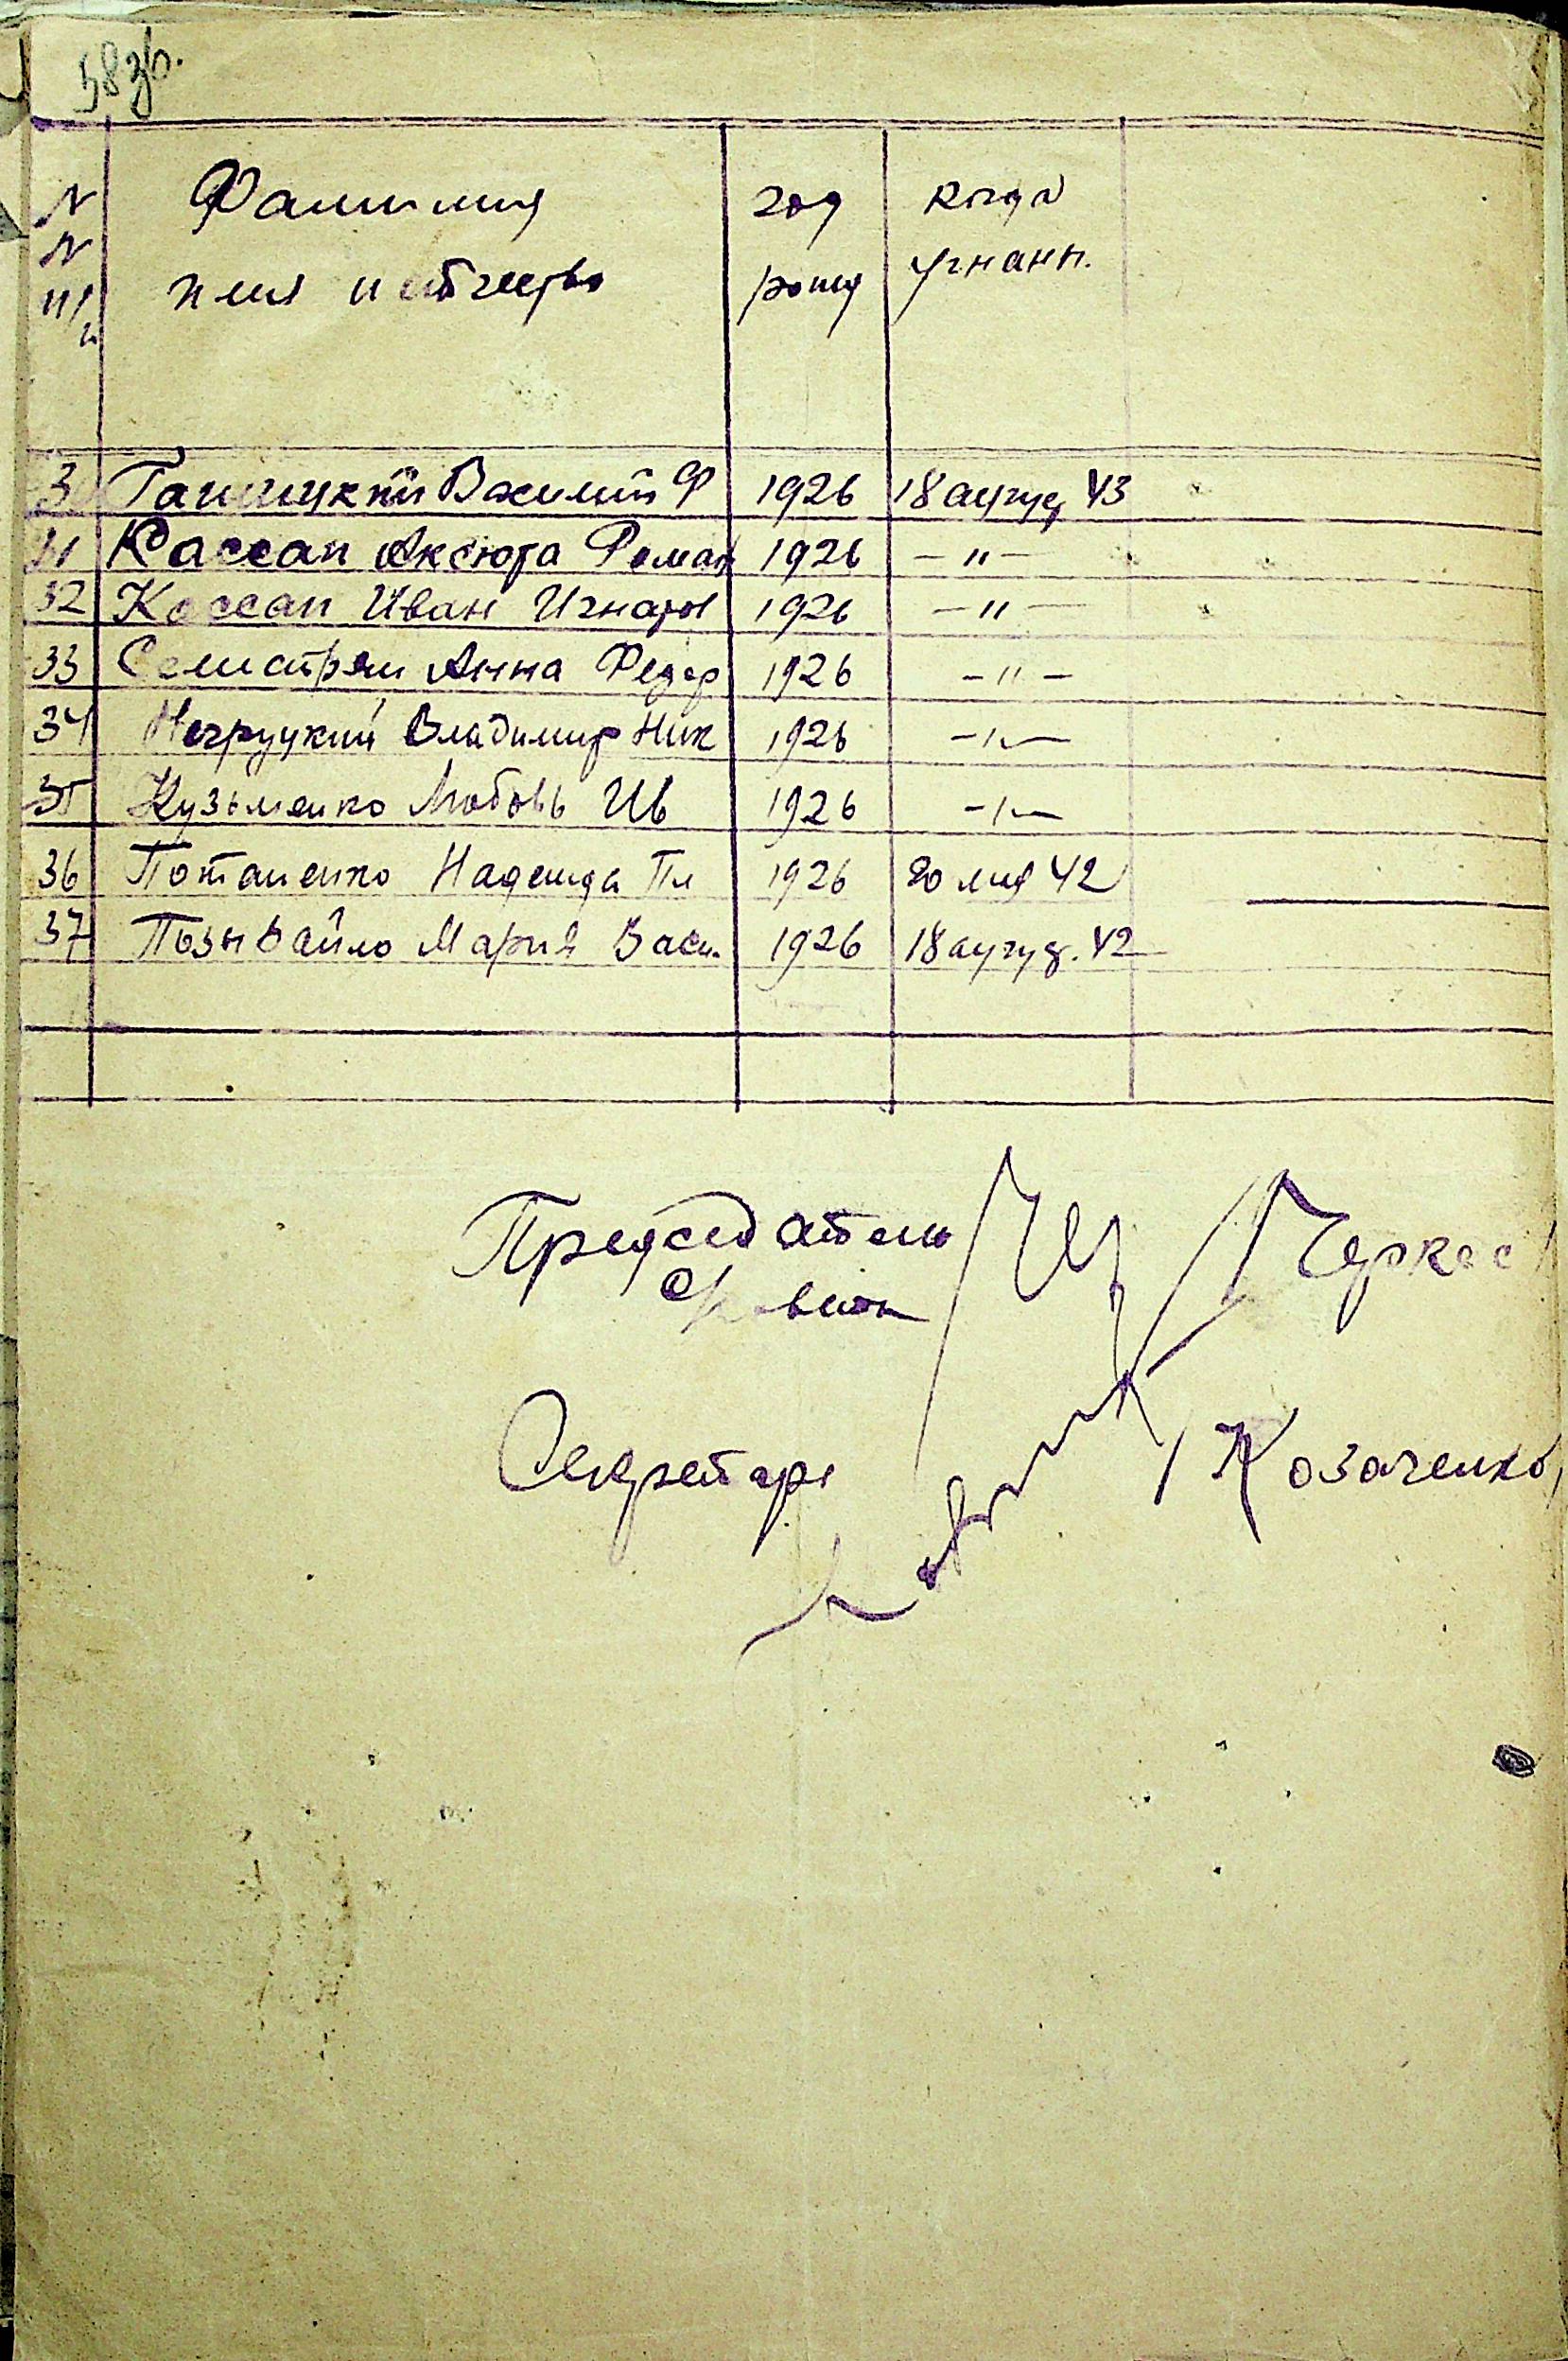 58зв.
N Фамилия год когда
N имя и отчество рожд угнан.
п/п
3 Василий Ф 1926 18 август 43
31 Кассап Аксюта Роман 1926 — " —
32 Кассап Иван Игнатов 1926 — " —
33 Анна Федор 1926 — " —
34 Негруцкий Владимир Ник 1926 — " —
35 Кузьменко Любовь Ив 1926 — " —
36 Потапенко Надежда Пл 1926 20 мая 42
37 Позывайло Мария Васи. 1926 18 август. 42
Председатель / Черкес /
с/совета
Секретарь / Козаченко /